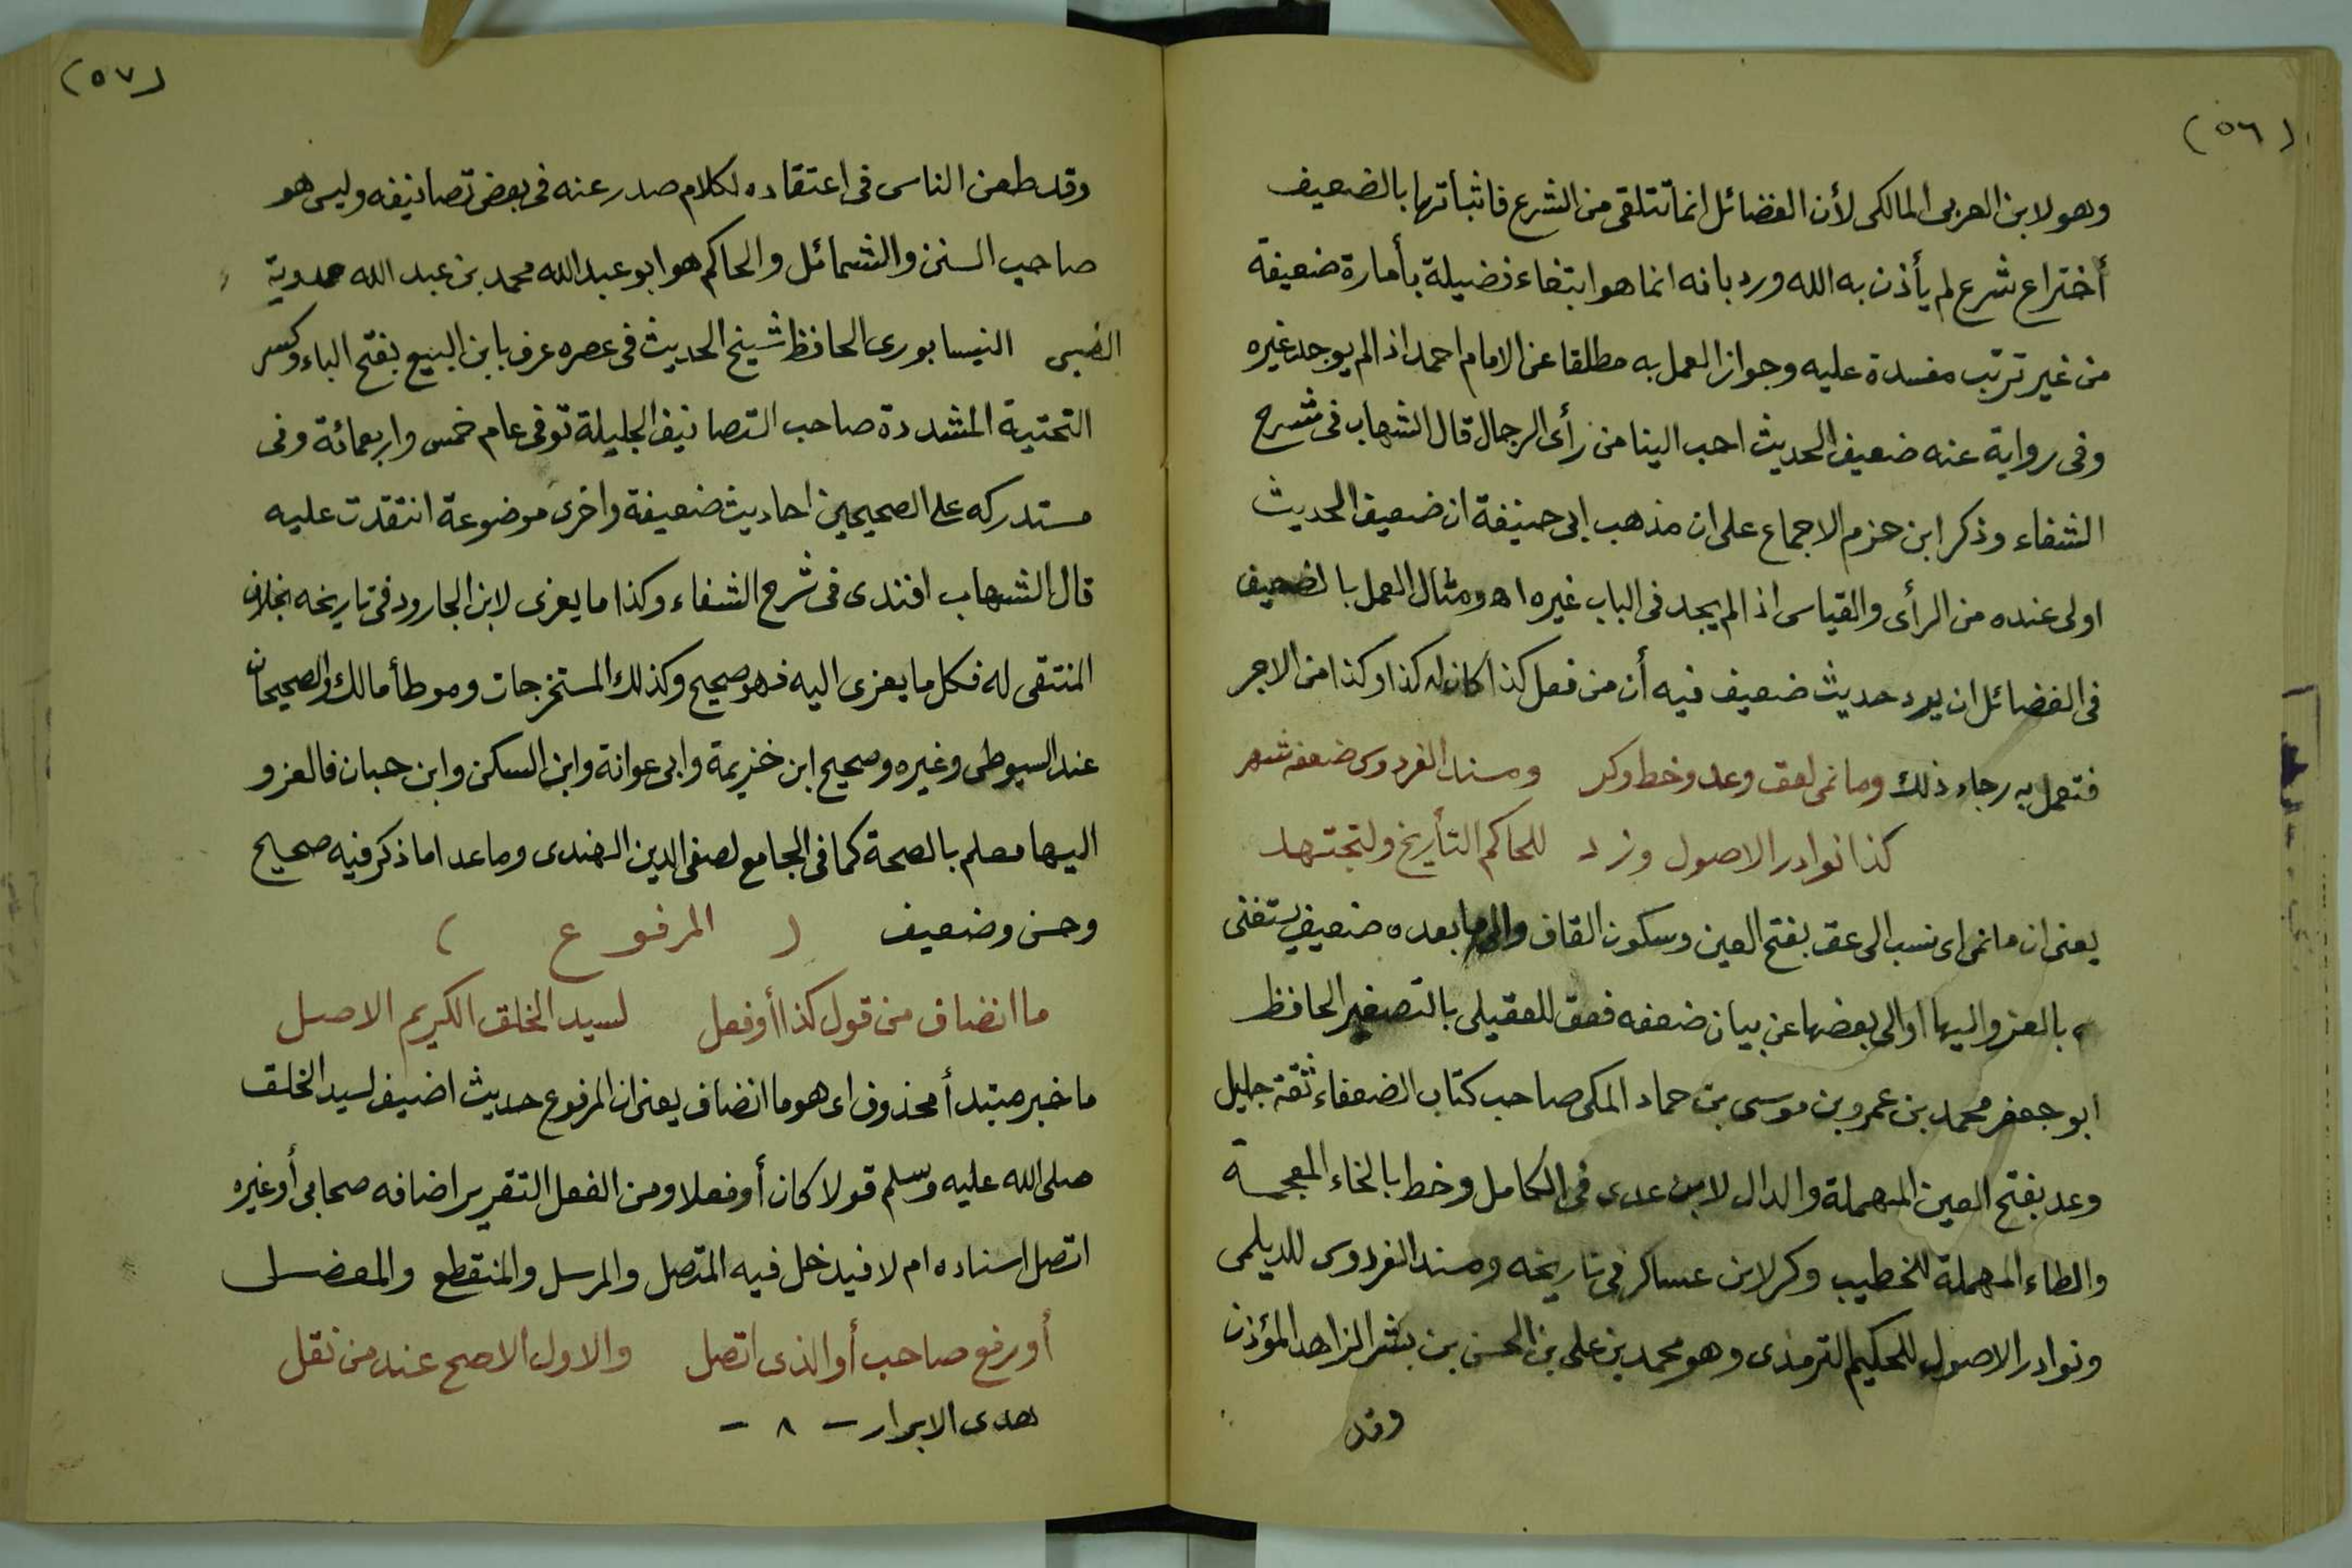 (٥٦)
وهو لابن العربى المالكى لأن الفضائل انما تتلقى من الشرع فاثباتها بالضعيف
أختراع شرع لم يأذن به الله ورد بانه انما هو ابتغاء فضيلة بأمارة ضعيفة
من غير ترتب مفسدة عليه وجواز العمل به مطلقا عن الامام احمد اذا لم يوجد غيره
وفى رواية عنه ضعيف الحديث احب الينا من رأى الرجال قال الشهاب فى شرح
الشفاء وذكر ابن حزم الاجماع على ان مذهب ابى حنيفة ان ضعيف الحديث
اولى عنده من الرأى والقياس اذا لم يجد فى الباب غيره اه ومثال العمل بالضعيف
فى الفضائل ان يرد حديث ضعيف فيه أن من فعل كذا كان له كذا وكذا من الاجر
فتعمل به رجاء ذلك وما نمى لعق وعد وخط وكر ومسند الفردوس ضعفه شهر
كذا نوادر الاصول وزد للحاكم التأريخ ولتجتهد
يعنى ان ما نمى اى نسب الى عق بفتح العين وسكون القاف والى ما بعده ضعيف يستغنى
بالعزو اليها او الى بعضها عن بيان ضعفه فعق للعقيلى بالتصغير الحافظ
ابو جعفر محمد بن عمرو بن موسى بن حماد المكى صاحب كتاب الضعفاء ثقة جليل
وعد بفتح العين المهملة والدال لابن عدى فى الكامل وخط بالخاء المعجمة
والطاء المهملة للخطيب وكر لابن عساكر فى تاريخه ومسند الفردوس للديلمى
ونوادر الاصول للحكيم الترمذى وهو محمد بن على بن الحسن بن بشر الزاهد المؤذن
وقد
(٥٧)
وقد طعن الناس فى اعتقاده لكلام صدر عنه فى بعض تصانيفه وليس هو
صاحب السنن والشمائل والحاكم هو ابو عبد الله محمد بن عبد الله حمدوية
الضبى النيسابورى الحافظ شيخ الحديث فى عصره عرف بابن البيع بفتح الباء وكسر
التحتية المشددة صاحب التصانيف الجليلة توفى عام خمس واربعمائة وفى
مستدركه على الصحيحين احاديث ضعيفة واخرى موضوعة انتقدت عليه
قال الشهاب افندى فى شرح الشفاء وكذا ما يعزى لابن الجارود فى تاريخه بخلاف
المنتقى له فكل ما يعزى اليه فهو صحيح وكذلك المستخرجات وموطأ مالك والصحيحان
عند السيوطى وغيره وصحيح ابن خزيمة وابى عوانة وابن السكن وابن حبان فالعزو
اليها معلم بالصحة كما فى الجامع لصفى الدين الهندى وما عدا ما ذكر فيه صحيح
وحسن وضعيف ( المرفوع )
ما انضاف من قول كذا أو فعل لسيد الخلق الكريم الاصل
ما خبر مبتدأ محذوف اى هو ما انضاف يعنى ان المرفوع حديث اضيف لسيد الخلق
صلى الله عليه وسلم قولا كان أو فعلا ومن الفعل التقرير اضافه صحابى أو غيره
اتصل اسناده ام لا فيدخل فيه المتصل والمرسل والمنقطع والمعضل
أو رفع صاحب أو الذى اتصل والاول الاصح عند من نقل
هدى الابرار – ٨ –